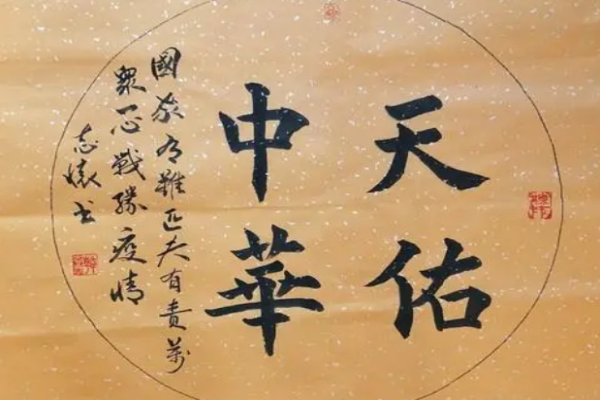 天佑
中華
國家有難匹夫有責萬
眾一心戰勝疫情
志書